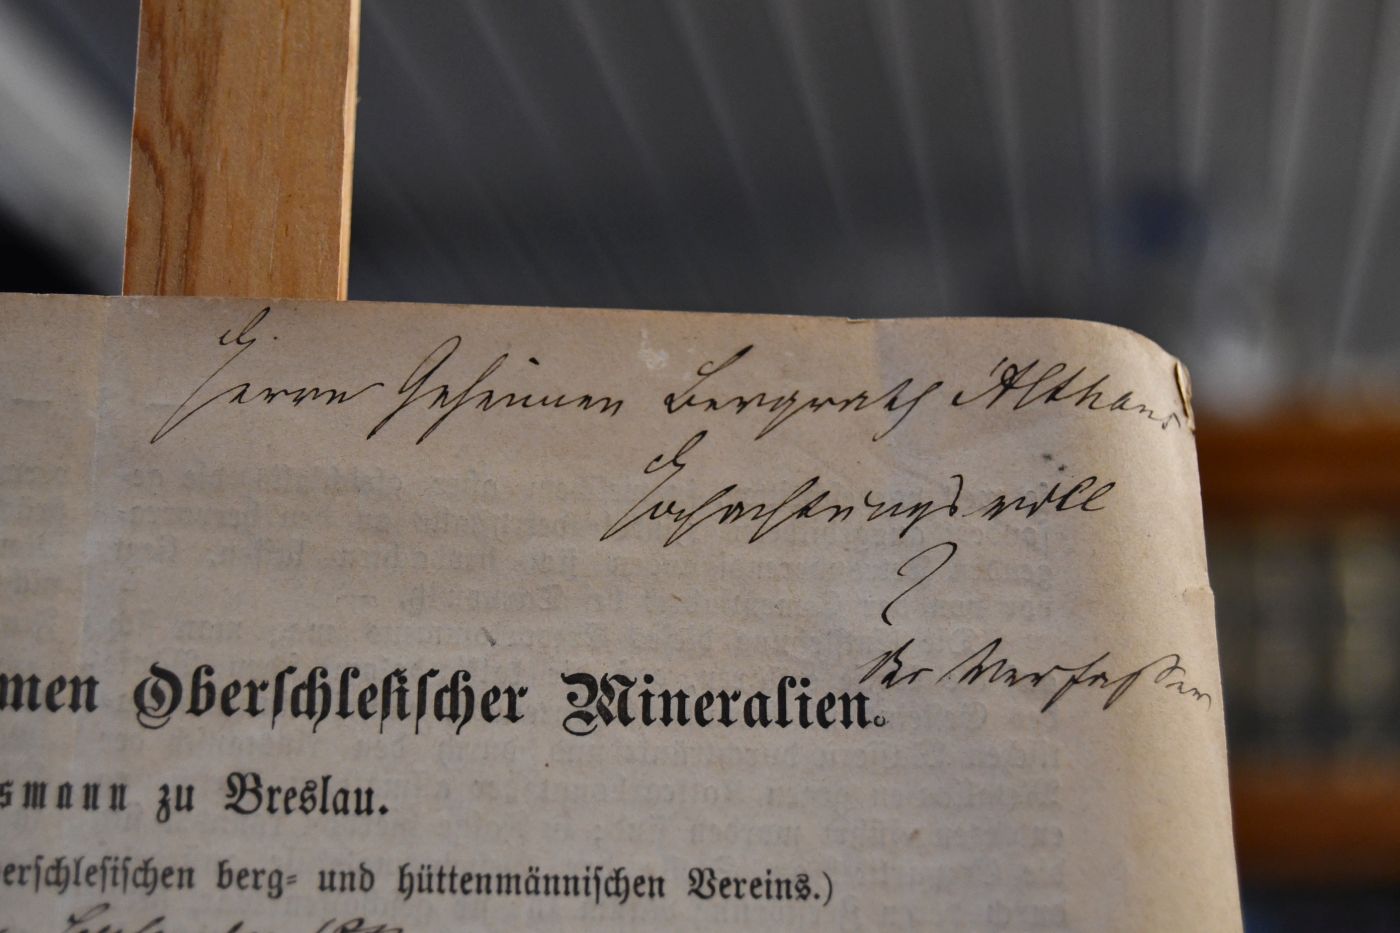 Herrn Geheimen Bergrath Althans
Hochachtungsvoll
Der Verfasser
men Oberschlesischer Mineralien.
smann zu Breslau.
erschlesischen berg- und hüttenmännischen Vereins.)